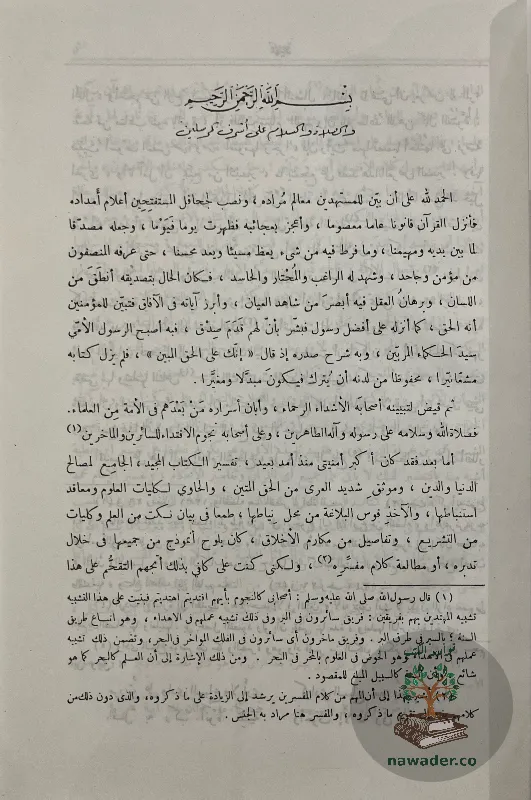 بِسْمِ اللَّهِ الرَّحْمَنِ الرَّحِيمِ
والصلاة والسلام على أشرف المرسلين
الحمد لله على أن بيّن للمستهدين معالم مُراده ، ونصب لجحافل المستفتِحِين أعلام أَمداده
فأنزل القرآن قانونا عاما معصوما ، وأعجز بعجائبه فظهرت يوما فَيَوْما ، وجعله مصدقا
لما بين يديه ومهيمنا ، وما فرط فيه من شىء يعظ مسيئا ويعد محسنا ، حتى عرفه المنصفون
من مؤمن وجاحد ، وشهد له الراغب والمُحْتار والحاسد ، فكان الحال بتصديقه أنطَقَ من
اللسان ، وبرهانُ العقل فيه أبصرَ من شاهد العيان ، وأبرز آياتِه فى الآفاق فتبيَّن للمؤمنين
أنه الحق ، كما أنزله على أفضل رسول فبشّر بأنّ لهم قَدَمَ صِدْق ، فبه أصبح الرسول الأمّي
سيدَ الحكماء المربّين ، وبه شُرح صدره إذ قال « إنك على الحق المبين » ، فلم يزل كتابه
مشعّا نيّرا ، محفوظا من لدنه أن يُترك فيكونَ مبدَّلا ومغيَّرا .
ثم قيض لتبيينه أصحابَه الأشداء الرحماء ، وأبان أسراره مَنْ بَعْدَهم فى الأمة مِن العلماء.
فصلاة الله وسلامه على رسوله وآله الطاهرين ، وعلى أصحابه نجوم الاقتداء للسائرين والماخرين (١)
أما بعد فقد كان أكبر أمنيتى منذ أمد بعيد ، تفسير الكتاب المجيد ، الجامِع لمصالح
الدنيا والدين ، وموثق شديد العرى من الحق المتين ، والحاوى لكليات العلوم ومعاقد
استنباطها ، والآخذِ قوس البلاغة من محل نِياطها ، طمعا فى بيان نكت من العلم وكليات
من التشريع ، وتفاصيل من مكارم الأخلاق ، كان يلوح أنموذج من جميعها فى خلال
تدبره ، أو مطالعة كلام مفسّره (٢) ، ولكنى كنت على كلفى بذلك أتجهم التقحُّم على هذا
(١) قال رسول الله صلى الله عليه وسلم : أصحابى كالنجوم بأيهم اقتديتم اهتديتم فبنيت على هذا التشبيه
تشبيه المهتدين بهم بفريقين : فريق سائرون فى البر وفى ذلك تشبيه عملهم فى الاهتداء ، وهو اتباع طريق
السنة بالسير فى طرق البر . وفريق ماخرون أى سائرون فى الفلك المواخر فى البحر، وتضمن ذلك تشبيه
عملهم فى الاهتداء وهو الخوض فى العلوم بالمخر فى البحر . ومن ذلك الإشارة إلى أن العلم كالبحر كما هو
شائع السنة كالسبيل المبلغ للمقصود .
إلى أن المهم من كلام المفسرين يرشد إلى الزيادة على ما ذكروه، والذى دون ذلك من
ما ذكروه ، والمفسر هنا مراد به الجنس .
nawader.co